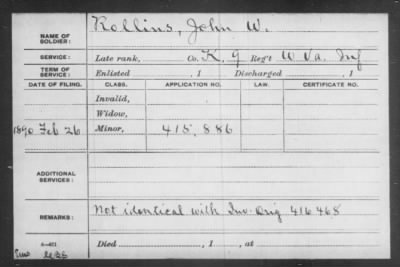 NAME OF SOLDIER: Rollins, John W.
SERVICE: Late rank, Co. K, 9 Reg't W Va. Inf
TERM OF SERVICE: Enlisted , 1 Discharged , 1
DATE OF FILING. CLASS. APPLICATION NO. LAW. CERTIFICATE NO.
Invalid,
Widow,
1890 Feb 26 Minor, 415,886
ADDITIONAL SERVICES:
REMARKS: Not identical with Inv. Orig 416468
Died , 1 , at